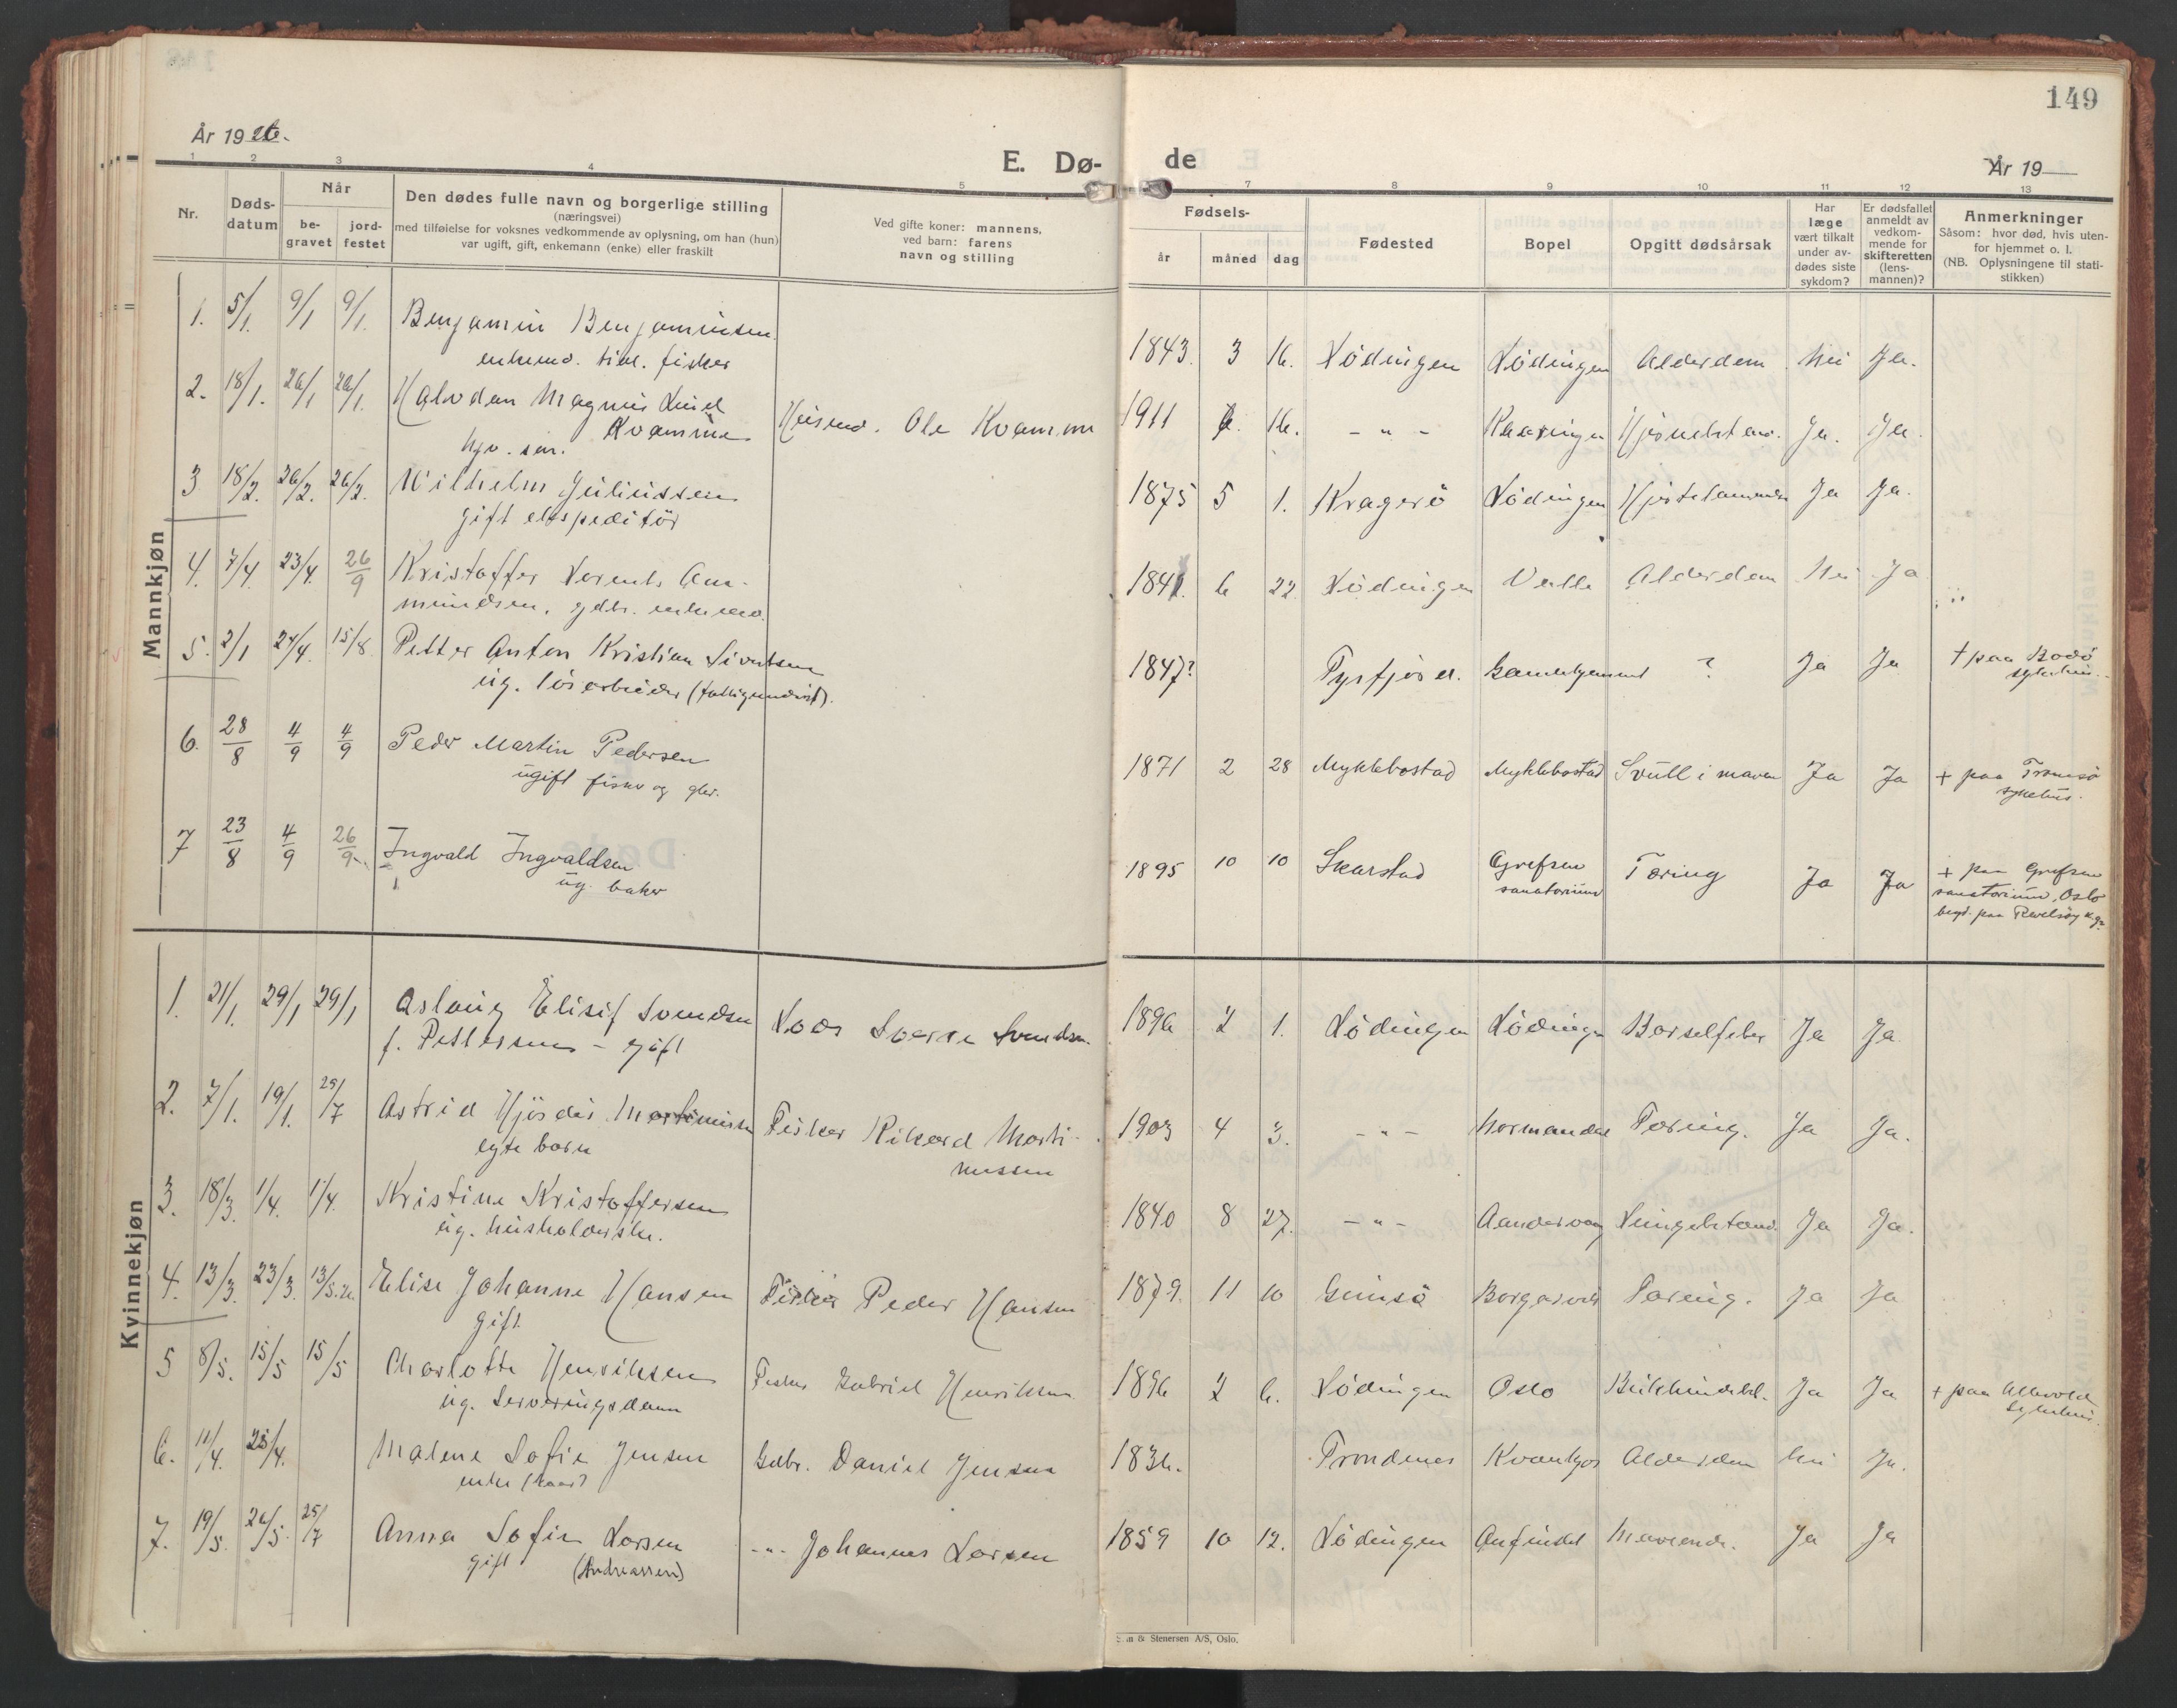 149
År 1926.
E. Dø-
de
År 19
1 2 3 4 5
7 8 9 10 11 12 13
Nr.
Døds-
datum
Når
be-
gravet
jord-
festet
Den dødes fulle navn og borgerlige stilling
(næringsvei)
med tilføielse for voksnes vedkommende av oplysning, om han (hun)
var ugift, gift, enkemann (enke) eller fraskilt
Ved gifte koner: mannens,
ved barn: farens
navn og stilling
Fødsels-
år
måned
dag
Fødested
Bopel
Opgitt dødsårsak
Har
læge
vært tilkalt
under av-
dødes siste
sykdom?
Er dødsfallet
anmeldt av
vedkom-
mende for
skifteretten
(lens-
mannen)?
Anmerkninger
Såsom: hvor død, hvis uten-
for hjemmet o. l.
(NB. Oplysningene til stati-
stikken)
Mannkjøn
1. 5/1. 9/1 9/1. Benjamin Benjaminsen 1843. 3 16. Lödingen Lödingen Alderdom Nei Ja.
enkem. fisker
2. 18/1. 26/1 26/1. Halvdan Magnus Kvamme Ole Kvamme 1911 6. 16. - " - Kaaringen Ja. Ja.
3 18/2. 26/2. 26/2. Wilhelm Juliussen 1875 5 1. Kragerö Lödingen Ja Ja.
gift ekspeditör
4. 7/4. 23/4. 26/9 Kristoffer Lorents Am- 1841. 6 22. Lödingen Alderdom Nei Ja
mundsen, gdbr. enkem.
5. 2/1 24/4. 15/8. Petter Anton Kristian Sivertsen 1847? Tysfjord. ? Ja Ja † paa Bodö
sykehus.
ug. lösarbeider
6. 28/8 4/9 4/9 Peder Martin Pedersen 1871 2 28 Myklebostad Myklebostad Svull i maven Ja Ja + paa Tromsö
sykehus.
ugift fisker og gbr.
7 23/8 4/9 26/9 Ingvald Ingvaldsen 1895 10 10 Skarstad Grefsen
sanatorium Tæring Ja Ja + paa Grefsen
sanatorium, Oslo
begr. paa
ug. baker
Kvinnekjøn
1. 21/1. 29/1 29/1 Aslaug Elisif Svendsen Sverre Svendsen. 1896 2 1. Lödingen Lödingen Barselfeber Ja Ja
f. Pettersen - gift
2. 7/1. 19/1. 25/7 Astrid Hjördis Martinussen Fisker Rikard Marti- 1903 4 3. - " - Tæring. Ja Ja.
nussen
egte barn
3. 18/3. 1/4. 1/4. Kristine Kristoffersen 1840 8 27. - " - Ja Ja.
ug. husholderske.
4. 13/3. 23/3. Elise Johanne Hansen Fisker Peder Hansen 1879. 11 10 Gimsö Tæring. Ja Ja
gift
5 8/5. 15/5 15/5 Charlotte Henriksen Fisker Gabriel Henriksen 1896 2 6. Lödingen Oslo Ja Ja + paa Ullevold
sykehus.
ug. Serveringsdame
6. 11/4. 23/4. Malene Sofie Jensen Gdbr. Daniel Jensen 1836. Trondenes Alderdom Nei Ja.
enke
7. 19/5. 26/5. 25/7 Anna Sofie Larsen - " - Johannes Larsen 1859 10 12. Lödingen Ja Ja
gift (Andreassen)
& Stenersen A/S, Oslo.